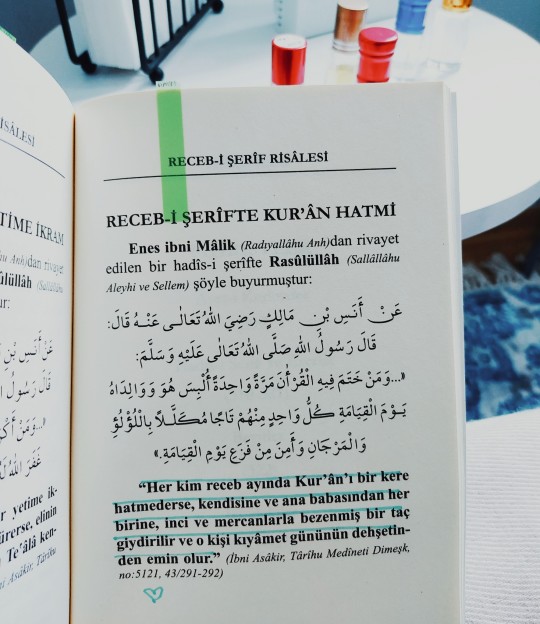 RİSÂLESİ
TİME İKRAM
Anh)dan rivayet
ûlüllâh (Sallâllâhu
ur:
عَنْ أَنَسِ بْنِ
قَالَ رَسُولُ
«...وَمَنْ أَكْرَ
غَفَرَ اللهُ لَهُ
r yetime ik-
ürerse, elinin
Te'âlâ ken-
Asâkir, Târîhu
RECEB-İ ŞERÎF RİSÂLESİ
RECEB-İ ŞERÎFTE KUR'ÂN HATMİ
Enes ibni Mâlik (Radıyallâhu Anh)dan rivayet
edilen bir hadîs-i şerîfte Rasûlüllâh (Sallâllâhu
Aleyhi ve Sellem) şöyle buyurmuştur:
عَنْ أَنَسِ بْنِ مَالِكٍ رَضِيَ اللهُ تَعَالَى عَنْهُ قَالَ:
قَالَ رَسُولُ اللهِ صَلَّى اللهُ تَعَالَى عَلَيْهِ وَسَلَّمَ:
«...وَمَنْ خَتَمَ فِيهِ الْقُرْأٰنَ مَرَّةً وَاحِدَةً أُلْبِسَ هُوَ وَوَالِدَاهُ
يَوْمَ الْقِيَامَةِ كُلُّ وَاحِدٍ مِنْهُمْ تَاجًا مُكَلَّلًا بِاللُّؤْلُؤِ
وَالْمَرْجَانِ وَأَمِنَ مِنْ فَزَعِ يَوْمِ الْقِيَامَةِ.»
“Her kim receb ayında Kur'ân'ı bir kere
hatmederse, kendisine ve ana babasından her
birine, inci ve mercanlarla bezenmiş bir taç
giydirilir ve o kişi kıyâmet gününün dehşetin-
den emin olur.” (İbni Asâkir, Târîhu Medîneti Dimeşk,
no:5121, 43/291-292)